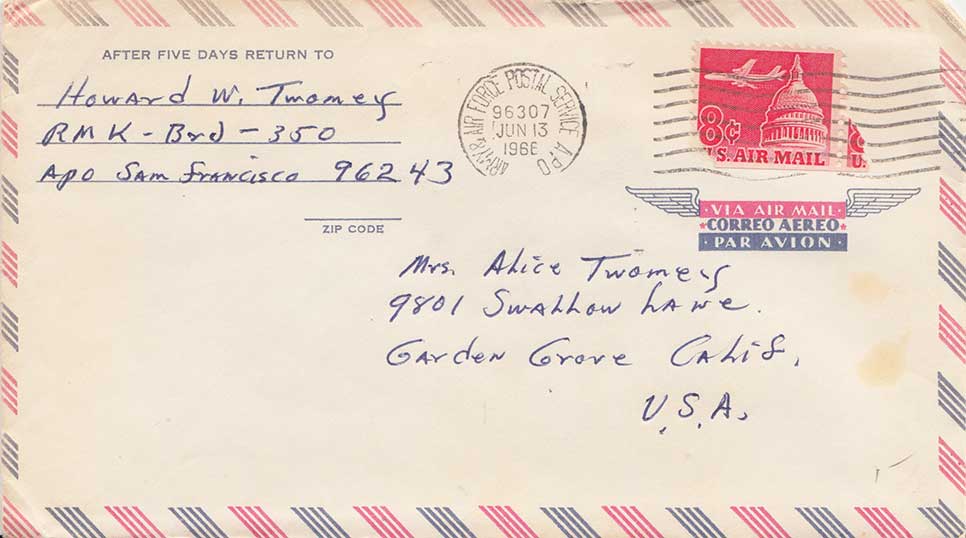 AFTER FIVE DAYS RETURN TO
Howard W. Twomey
RMK - Brd - 350
Apo San Francisco 96243
ZIP CODE
ARMY & AIR FORCE POSTAL SERVICE APO
96307
JUN 13
1966
8¢
U.S. AIR MAIL
¢
U.
VIA AIR MAIL
CORREO AEREO
PAR AVION
Mrs. Alice Twomey
9801 Swallow Lane.
Garden Grove Calif.
U.S.A.